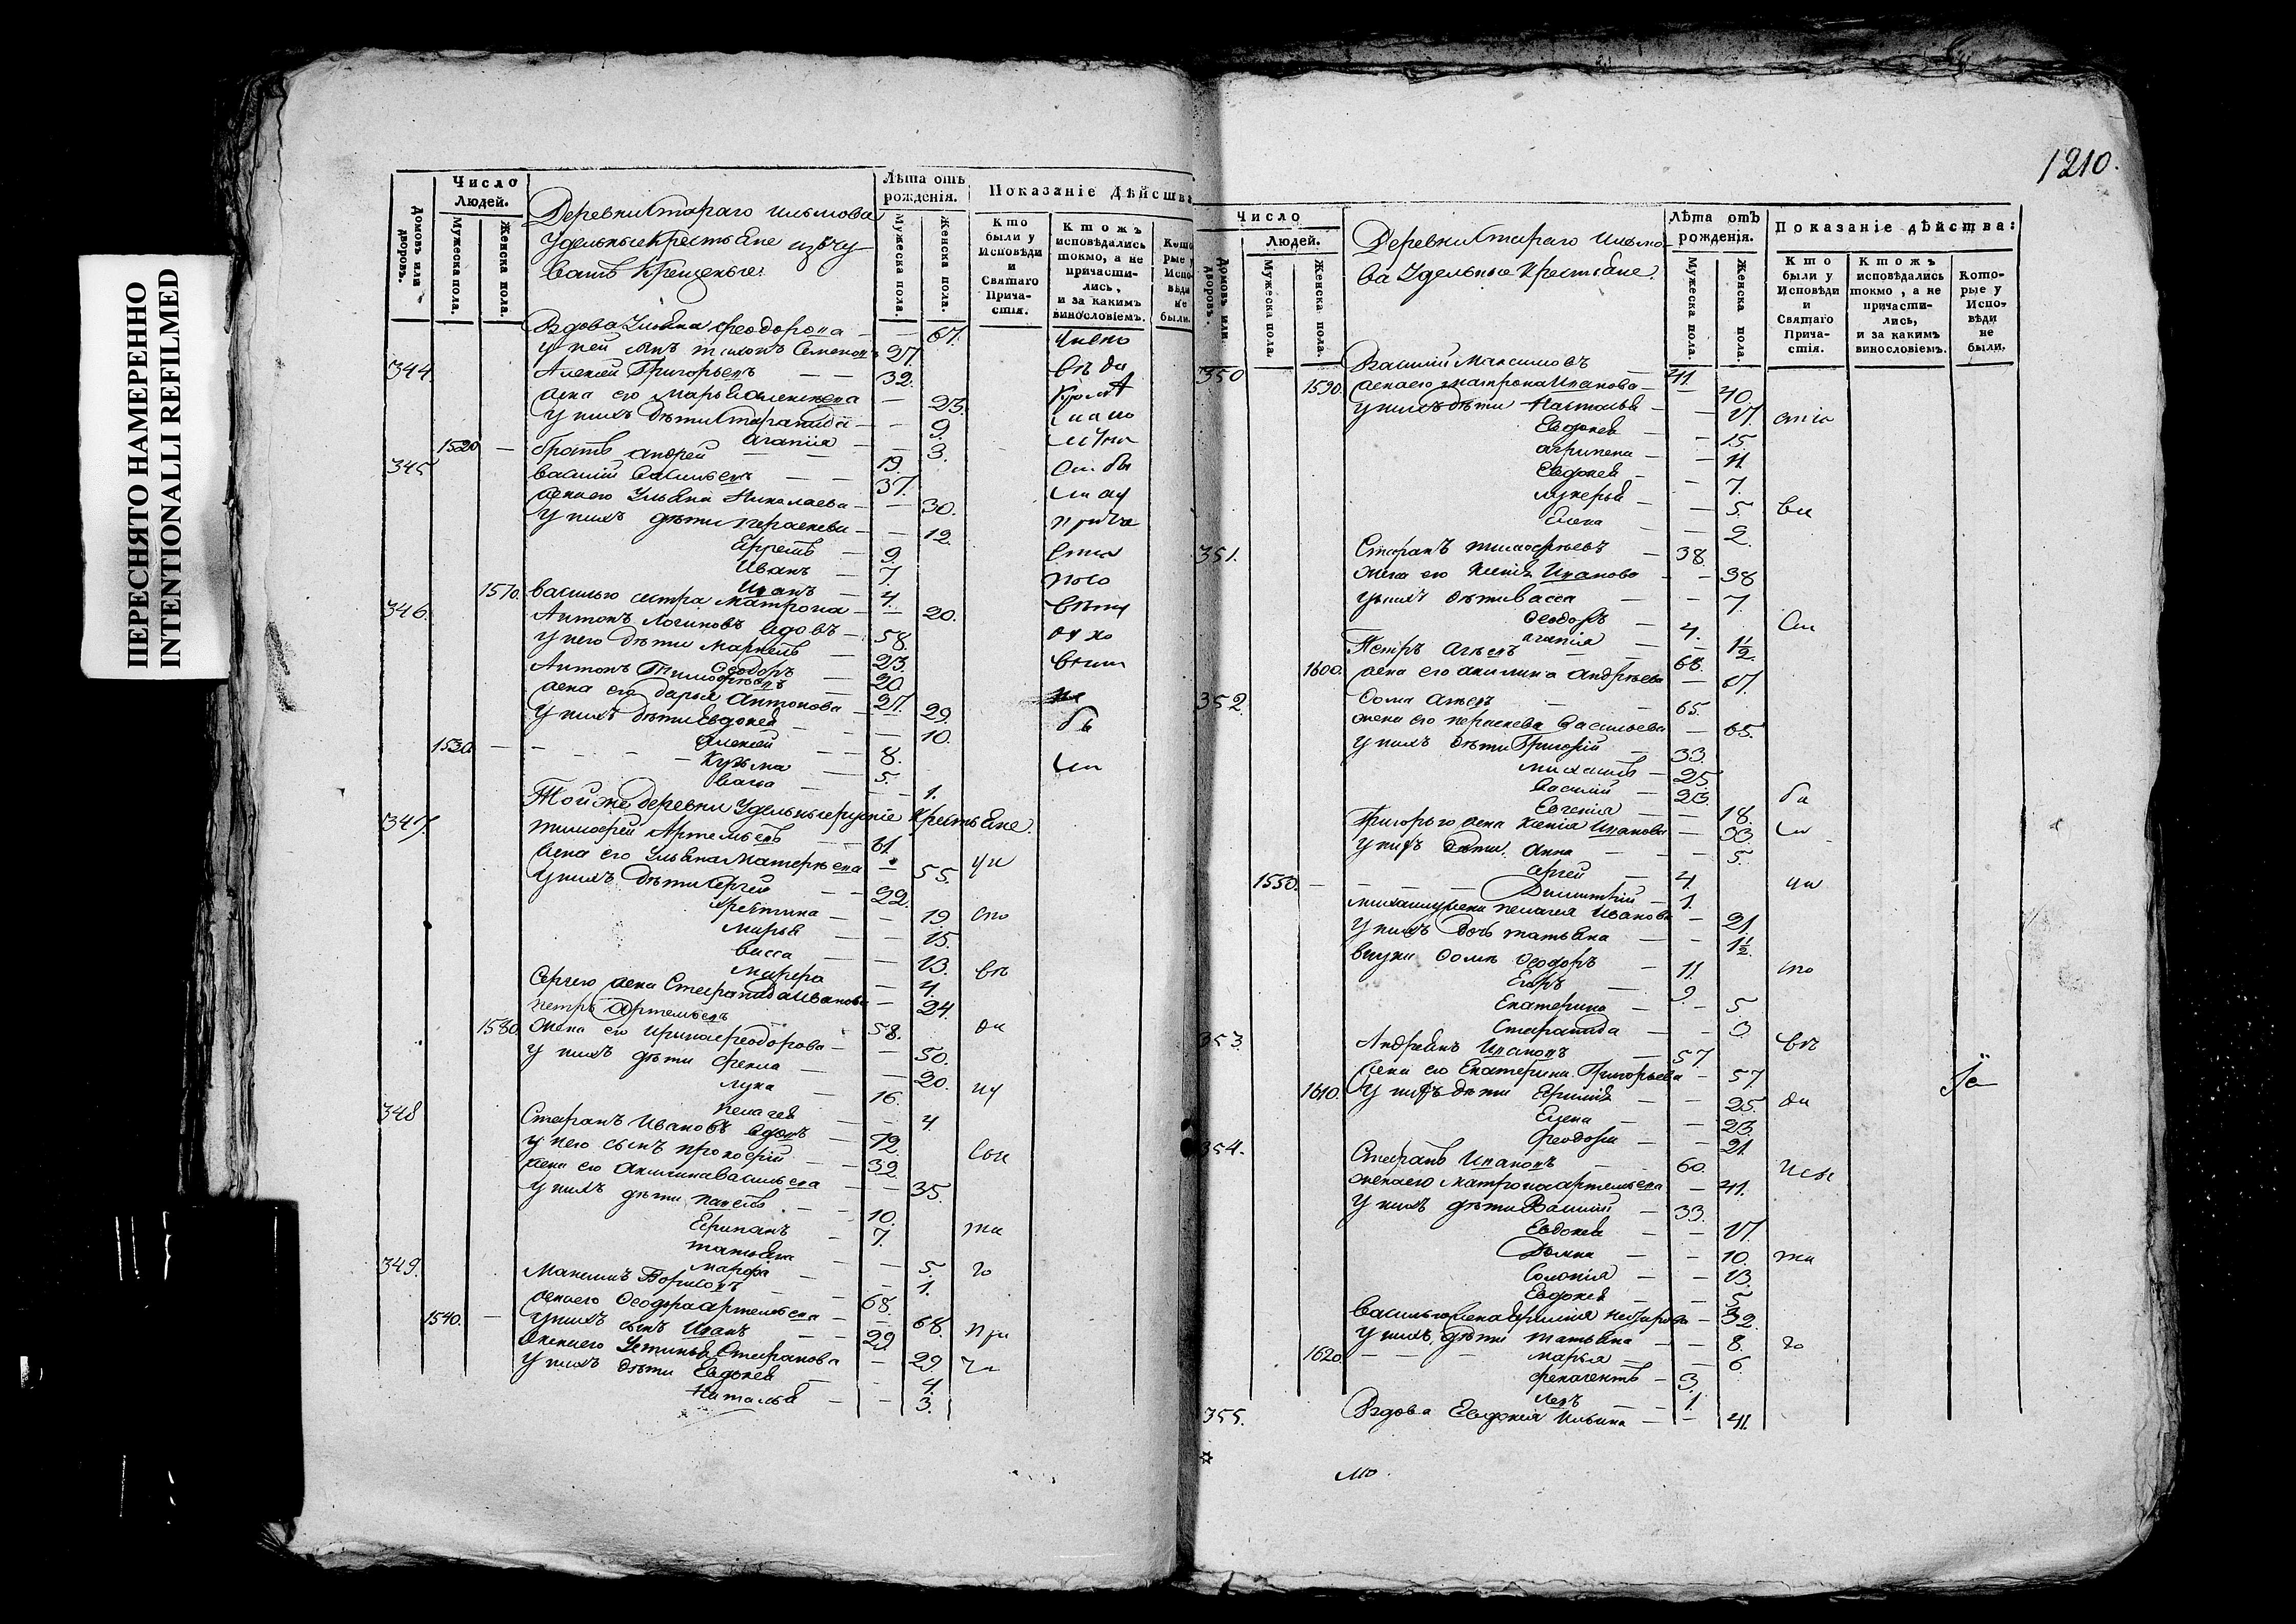 ПЕРЕСНЯТО НАМЕРЕННО
INTENTIONALLI REFILMED
Домовъ или дворовъ.
Число Людей.
Мужеска пола.
Женска пола.
Деревни Стараго Ильмова
Удельные Крестьяне изъ чу
вашъ Крещеные:
Лѣта отъ рожденія.
Мужеска пола.
Женска пола.
Показаніе Дѣйства
Кто были у Исповѣди и Святаго Причастія.
Ктожъ исповѣдались токмо, а не причастились, и за какимъ винословіемъ.
Вдова Ульяна Феодорова — — 67.
у ней сынъ Семеновъ 27.
344 Алексей Григорьевъ — — 32.
жена его Марья Алексѣева — 23.
у нихъ дѣти Старапида — — 9.
Агапія — — 3.
1520 — братъ Андрей — — 19.
345 Василій Васильевъ — — 37.
жена его Ульяна Николаева — — 30.
у нихъ дѣти Параскева — — 12.
Ефремъ — 9.
Иванъ — 7.
Иванъ — 4.
1570 Василью сестра Матрона — — 20.
346. Антонъ Логиновъ вдовъ — 58.
у него дѣти Маркелъ — 23.
Феодоръ — 20
Антонъ Тимофѣевъ — 27.
жена его Дарья Антонова — — 29.
у нихъ дѣти Евдокея — — 10.
1530 — — Алексей — 8.
Кузьма — 5.
Васса — — 1.
Той же деревни Удельные рускіе Крестьяне.
347. Тимофей Артемьевъ — 61.
жена его Ульяна Матвѣева — 55.
у нихъ дѣти Сергей — — 22.
Христина — — 19.
Марья — — 15.
Васса — — 13.
Марфа — 4.
Сергею жена Стефанида Иванова — 24.
Петръ Артемьевъ 58.
1580 жена его Ирина Феодорова — — 50.
у нихъ дѣти Фекла — — 20.
Лука — 16.
Пелагея — — 4.
348 Стефанъ Ивановъ вдовъ — 72.
у него сынъ Прокофій — — 39.
жена его Акилина Васильева — — 35.
у нихъ дѣти Павелъ — — 10.
Ефипанъ — 7.
Татьяна — — 5.
Марфа — — 1.
349. Максимъ Борисовъ — 68.
жена его Феодора Артемьева — — 68.
1540. — у нихъ сынъ Иванъ — — 29.
жена его Устинья Стефанова — 29.
у нихъ дѣти Евдокея — — 4.
Наталья — — 3.
1210.
Домовъ или дворовъ.
Число Людей.
Мужеска пола.
Женска пола.
Деревни Стараго Ильмо-
ва Удельные Крестьяне.
Лѣта отъ рожденія.
Мужеска пола.
Женска пола.
Показаніе дѣйства:
Кто были у Исповѣди и Святаго Причастія.
Ктожъ исповѣдались токмо, а не причастились, и за какимъ винословіемъ.
Которые у Исповѣди не были.
350 Василій Максимовъ — 41.
1590. жена его Матрона Иванова — — 40.
у нихъ дѣти Наталья — — 17.
Евдокея — — 15.
Агрипена — — 11.
Евдокея — — 7.
Лукерья — — 5.
Елена — — 2.
351. Стефанъ Тимофѣевъ — 38.
жена его Ксенія Иванова — — 38
у нихъ дѣти Васса — — 7.
Феодоръ — 4.
Агапія — — 1½.
Петръ — 68.
1600. жена его Акилина Андрѣева — 67.
352. Фома — 65.
жена его Параскева Васильева — 65.
у нихъ дѣти Григорій — 33.
Михаилъ — 25.
Василій — 23.
Евгенія — — 18.
Григорью жена Ксенія Иванова — 33.
у нихъ дѣти Анна — — 5.
Сергей — 4.
1550. — — Димитрій — 1.
Михаилу жена Пелагея Иванова — 21.
у нихъ дочь Татьяна — — 1½.
внуки Фомы Феодоръ — 11.
Егоръ — 9.
Екатерина — — 5.
Стефанида — — 3.
353. Андреянъ Ивановъ — 57
жена его Екатерина Григорьева — 57.
1610. у нихъ дѣти Ефимія — — 25.
Елена — — 23.
Феодосья — — 21.
354. Стефанъ Ивановъ — 60.
жена его Матрона Артемьева — 41.
у нихъ дѣти Василій — 33.
Евдокея — — 17.
Домна — — 10.
Соломія — — 13.
Евдокея — — 5.
Василью жена Ефимія — 32.
у нихъ дѣти Татьяна — — 8.
1620. — — Марья — — 6.
— 3.
Левъ — 1.
355. Вдова Евдокея Ильина — — 41.